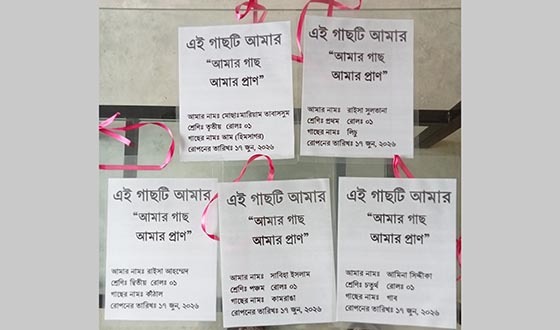 এই গাছটি আমার
“আমার গাছ
আমার প্রাণ”
আমার নামঃ মোছাঃমারিয়াম তাবাসসুম
শ্রেণিঃ তৃতীয় রোলঃ ০১
গাছের নামঃ আম (হিমসাগর)
রোপনের তারিখঃ ১৭ জুন, ২০২৬
এই গাছটি আমার
“আমার গাছ
আমার প্রাণ”
আমার নামঃ রাইসা সুলতানা
শ্রেণিঃ প্রথম রোলঃ ০১
গাছের নামঃ লিচু
রোপনের তারিখঃ ১৭ জুন, ২০২৬
এই গাছটি আমার
“আমার গাছ
আমার প্রাণ”
আমার নামঃ রাইসা আহম্মেদ
শ্রেণিঃ দ্বিতীয় রোলঃ ০১
গাছের নামঃ কাঁঠাল
রোপনের তারিখঃ ১৭ জুন, ২০২৬
এই গাছটি আমার
“আমার গাছ
আমার প্রাণ”
আমার নামঃ সাবিহা ইসলাম
শ্রেণিঃ পঞ্চম রোলঃ ০১
গাছের নামঃ কামরাঙা
রোপনের তারিখঃ ১৭ জুন, ২০২৬
এই গাছটি আমার
“আমার গাছ
আমার প্রাণ”
আমার নামঃ আমিনা সিদ্দীকা
শ্রেণিঃ চতুর্থ রোলঃ ০১
গাছের নামঃ গাব
রোপনের তারিখঃ ১৭ জুন, ২০২৬